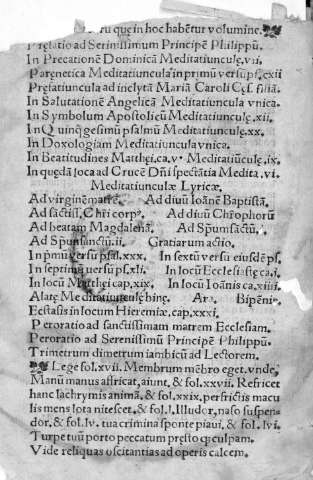 rū quę in hoc habētur volumine.
Pręfatio ad Serinissimum Principē Philippū.
In Precationē Dominicā Meditatiunculę.vii.
Paręnetica Meditatiuncula in primū versū ps. cxii
Pręfatiuncula ad inclytā Mariā Caroli Cęs. filiā.
In Salutationē Angelicā Meditatiuncula vnica.
In Symbolum Apostolicū Meditunculę.xii.
In Quinq̃gesimū psalmū Meditunculę.xx.
In Doxologiam Meditatiuncula vnica.
In Beatitudines Matthęi.ca.v. Meditatiūculę.ix.
In quędā loca ad Crucē Dñi spectātia Medita.vi.
Meditatiunculæ Lyricæ.
Ad virginē matrē. Ad diuū Ioānē Baptistā.
Ad sactiss. Chři corpꝰ. Ad diuū Chřophorū
Ad beatam Magdalenā. Ad Spūm sactū.
Ad Spūm sanctū.ii. Gratiarum actio.
In p̃mū versū psal.xxx. In sextū versū eiusdē ps.
In septimū versū ps.xli. In locū Ecclesiastię ca.i.
In locū Matthęi cap.xix. In locū Ioānis ca.xiiii.
Alatę Meditatiunculę binę. Ara. Bipēnis.
Ecstasis in locum Hieremiæ.cap.xxxi.
Peroratio ad sanctissimam matrem Ecclesiam.
Peroratio ad Serenissimū Principē Philippū.
Trimetrum dimetrum iambicū ad Lectorem.
Lege fol.xvii. Membrum mēbro eget. vnde,
Manū manus affricat, aiunt. & fol.xxvii. Refricet
hanc lachrymis animā. & fol.xxix. perfrictis macu
lis mens lota nitescet. & fol.l. Illudor, naso suspen-
dor. & fol.lv. tua crimina sponte piaui, & fol.lvi.
Turpe tuū porto peccatum pręsto q; culpam.
Vide reliquas oscitantias ad operis calcem.